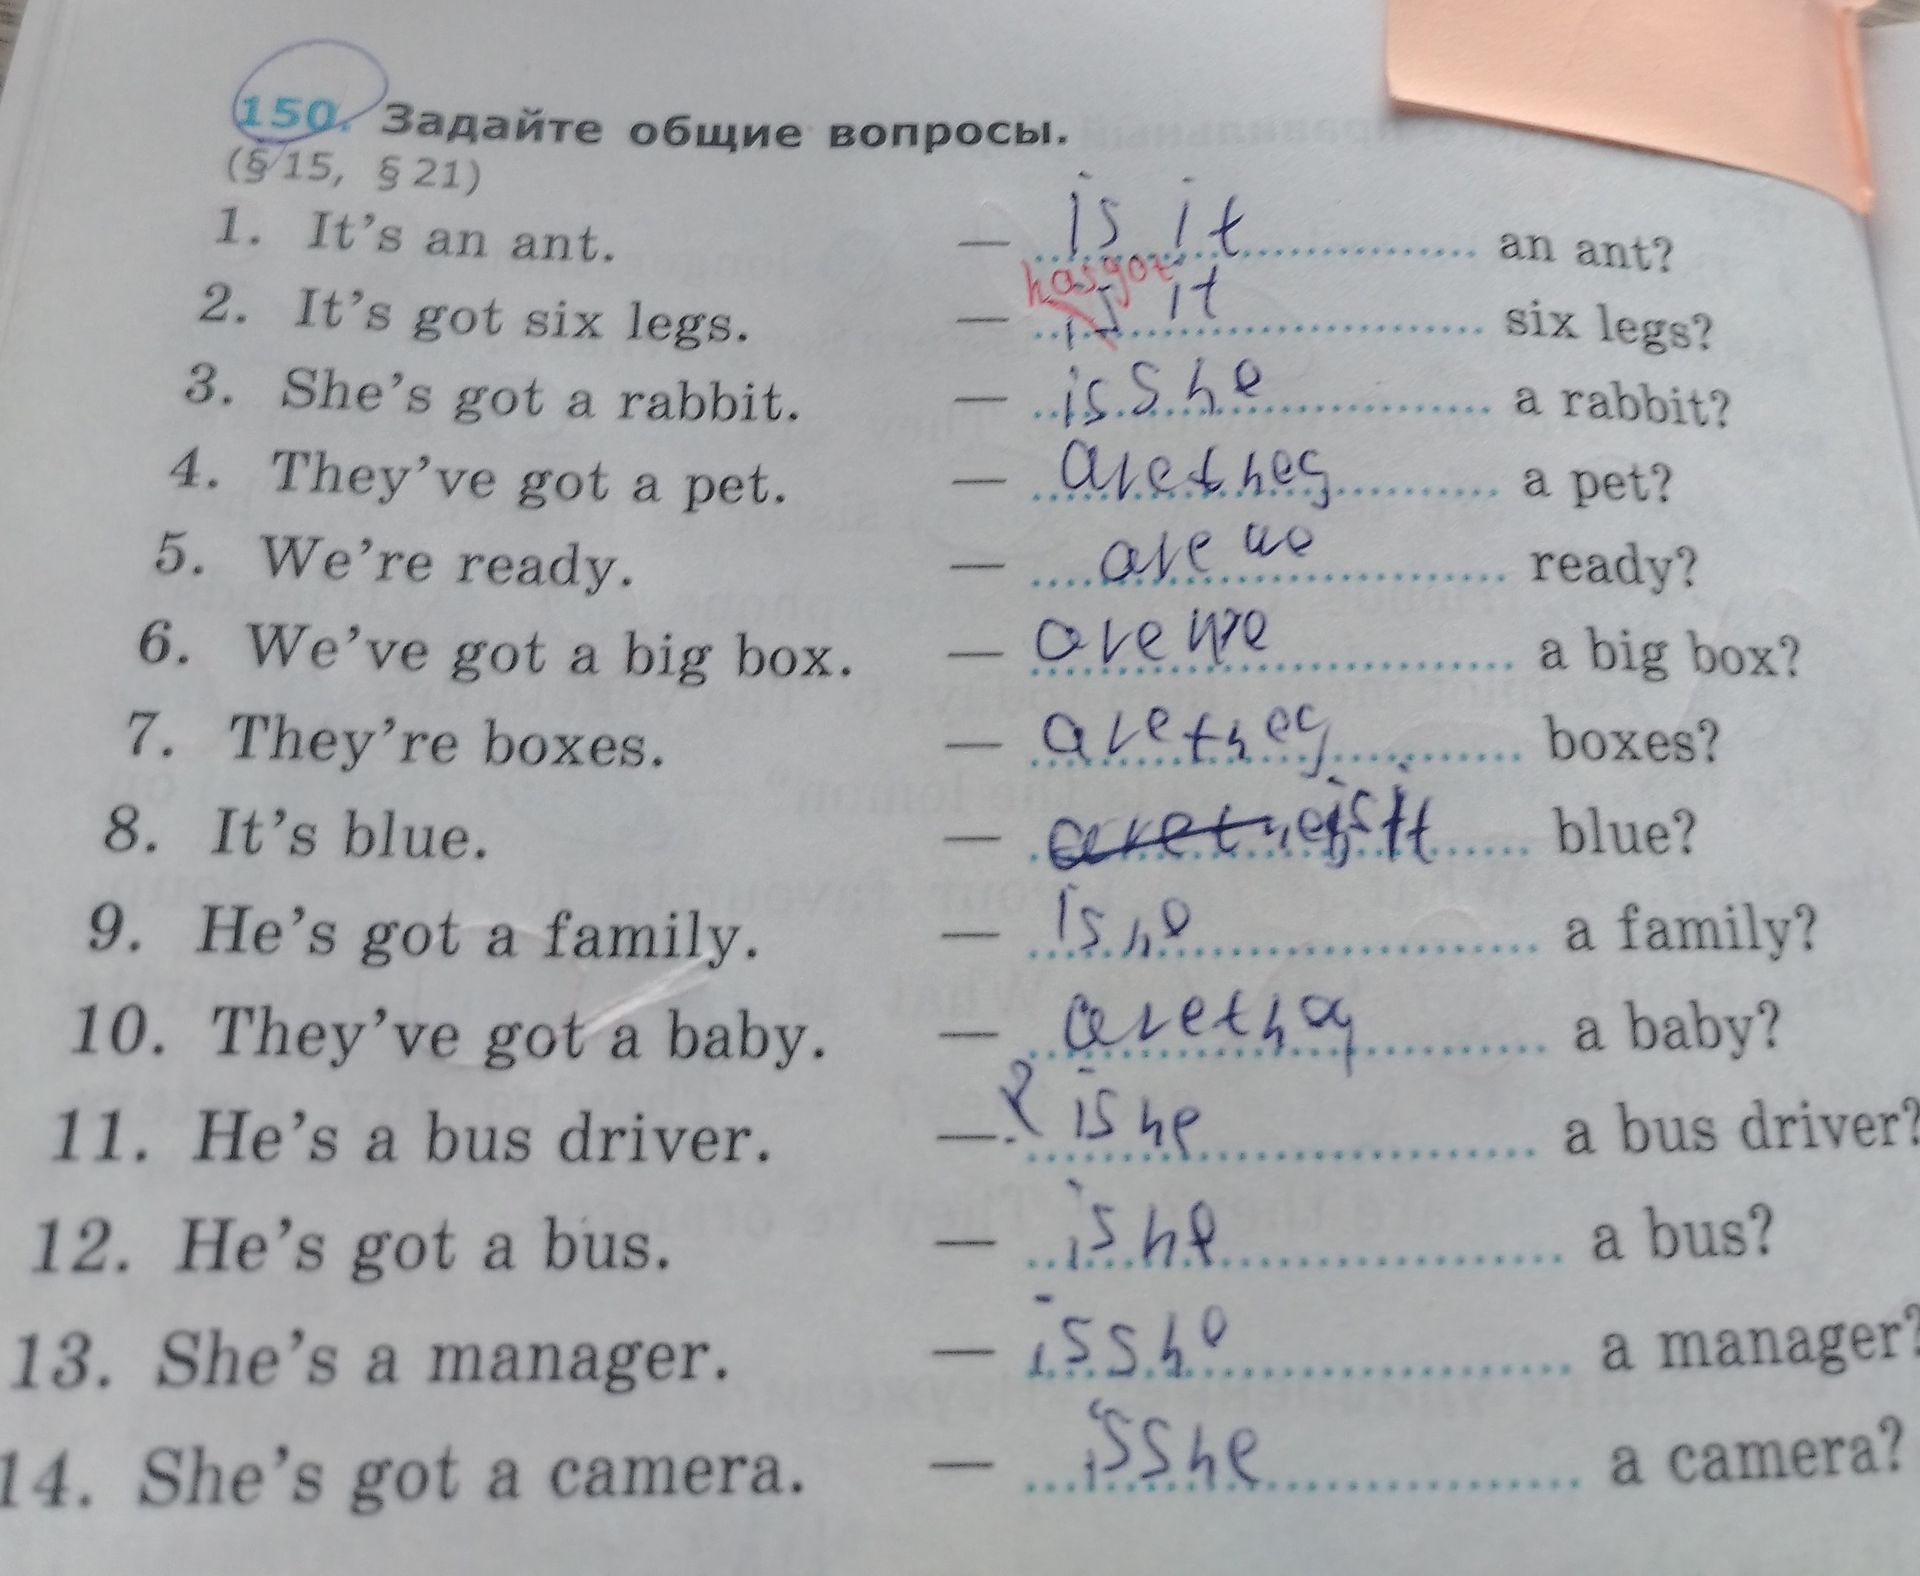 150. Задайте общие вопросы.
(§ 15, § 21)
1. It's an ant. — is it an ant?
has got
2. It's got six legs. — is it six legs?
3. She's got a rabbit. — is She a rabbit?
4. They've got a pet. — are they a pet?
5. We're ready. — are we ready?
6. We've got a big box. — are we a big box?
7. They're boxes. — are they boxes?
8. It's blue. — is it blue?
9. He's got a family. — is he a family?
10. They've got a baby. — are thay a baby?
11. He's a bus driver. — is he a bus driver?
12. He's got a bus. — is he a bus?
13. She's a manager. — is she a manager?
14. She's got a camera. — is she a camera?